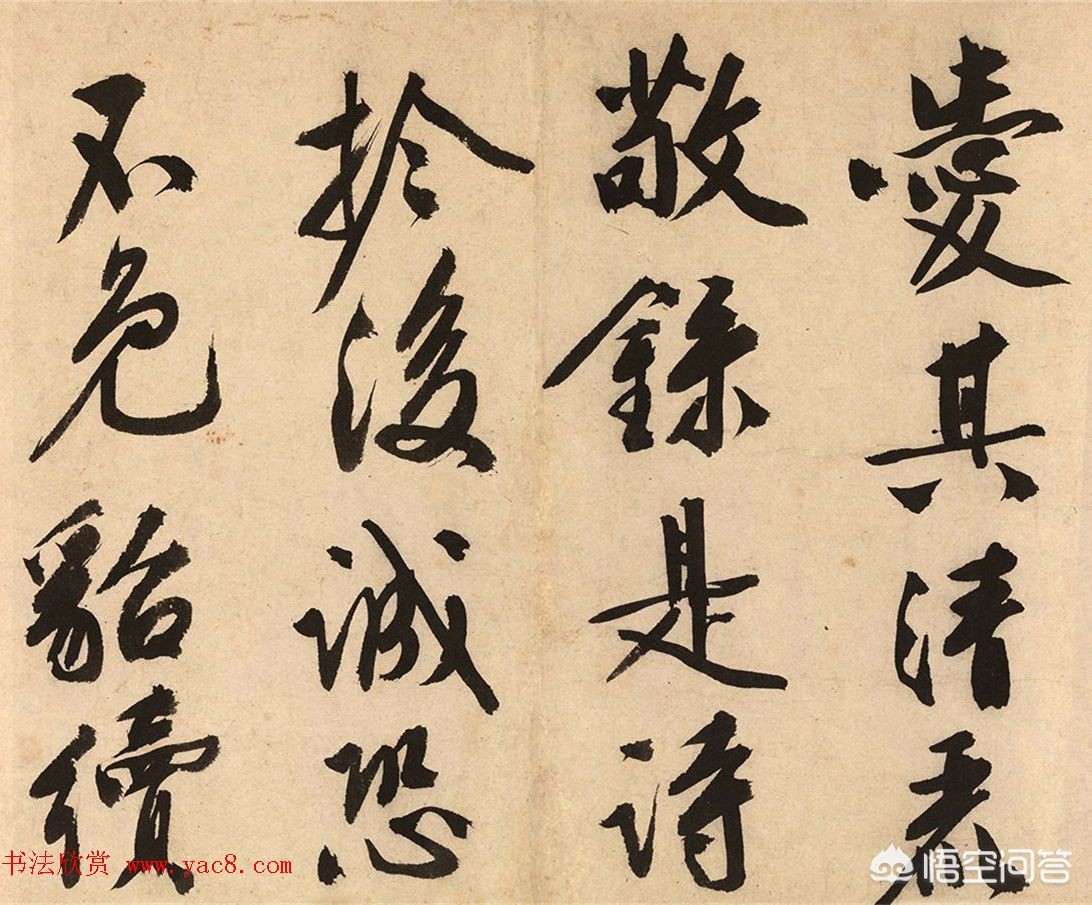 愛其清麗
敬録是詩
於後誠恐
不免貂續
书法欣赏 www.yac8.com
悟空问答